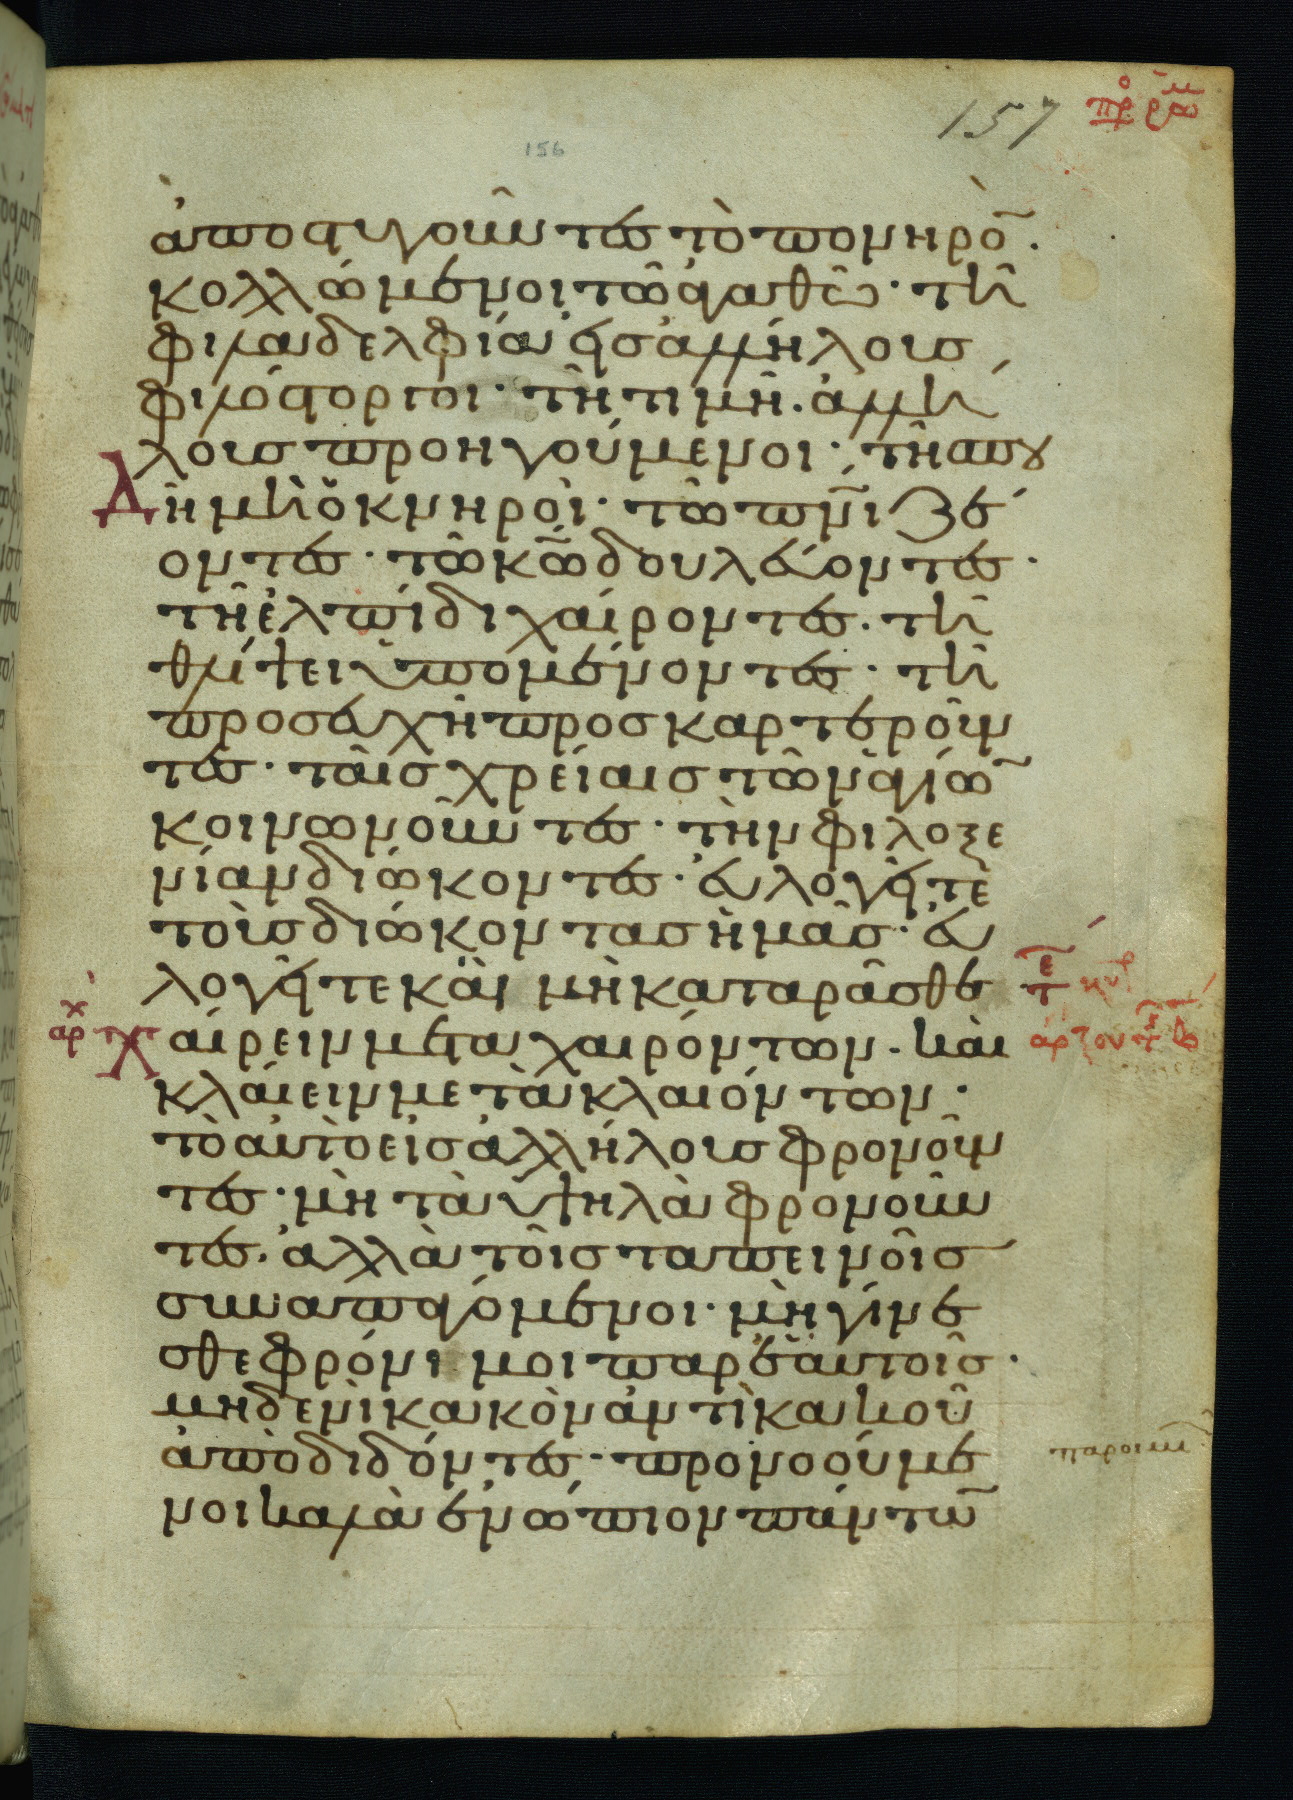 157
156
ἀποστυγοῦντες τὸ πονηρὸ̄.
κολλώμενοι τῶ ἀγαθῶ· τῆ
φιλαδελφία εἰς ἀλλήλους
φιλόστοργοι· τῆ τιμῆ. ἀλλή
λους προηγούμενοι· τῆ σπου
δῆ μὴ ὀκνηροὶ· τῶ πν̄ι ζέ
οντες· τῶ κ̄ω δουλεύοντες·
τῆ ἐλπίδι χαίροντες. τῆ
θλίψει ὑπομένοντες· τῆ
προσευχῆ προσκαρτεροῦν
τες· ταῖς χρείαις τῶν ἁγίω̄
κοινωνοῦντες· τὴν φιλοξε
νίαν διώκοντες· εὐλογεῖτε
τοὺς διώκοντας ἡμᾶς· εὐ
λογεῖτε καὶ μὴ καταρᾶσθε
Χαίρειν μετὰ χαιρόντων. καὶ
κλαίειν μετὰ κλαιόντων·
τὸ αὐτὸ εἰς ἀλλήλους φρονοῦν
τες· μὴ τὰ ὑψηλὰ φρονοῦν
τες. ἀλλὰ τοῖς ταπεινοῖς
συναπαγόμενοι· μὴ γίνε
σθε φρόνιμοι παρ' ἑαυτοῖς·
μηδενὶ κακὸν ἀντὶ κακοῦ
ἀποδιδόντες· προνοούμε
νοι καλὰ ἐνώπιον πάντω̄